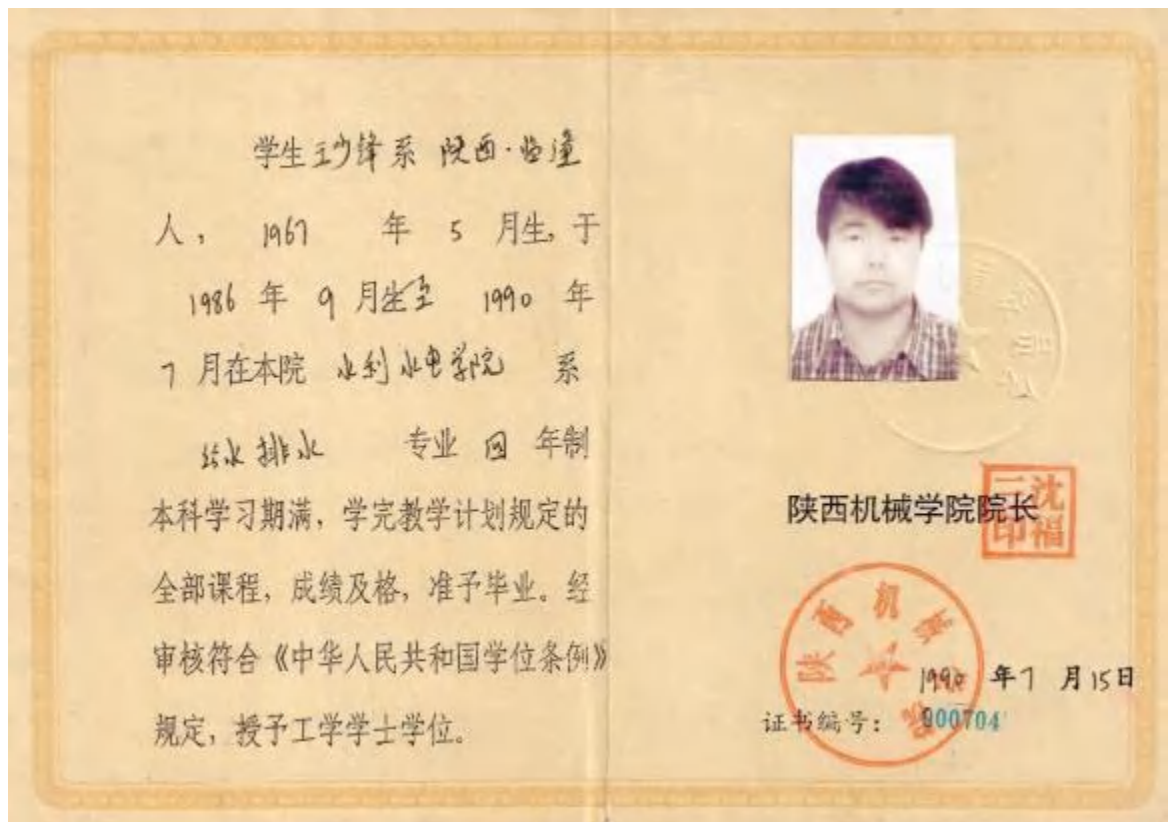 学生王少锋系 陕西·临潼
人， 1967 年 5 月生，于
1986 年 9 月生至 1990 年
7 月在本院 水利水电学院 系
给水排水 专业 四 年制
本科学习期满，学完教学计划规定的
全部课程，成绩及格，准予毕业。经
审核符合《中华人民共和国学位条例》
规定，授予工学学士学位。
陕西机械学院院长
沈福二印
陕西机械学院
1990 年 7 月 15日
证书编号： 900704